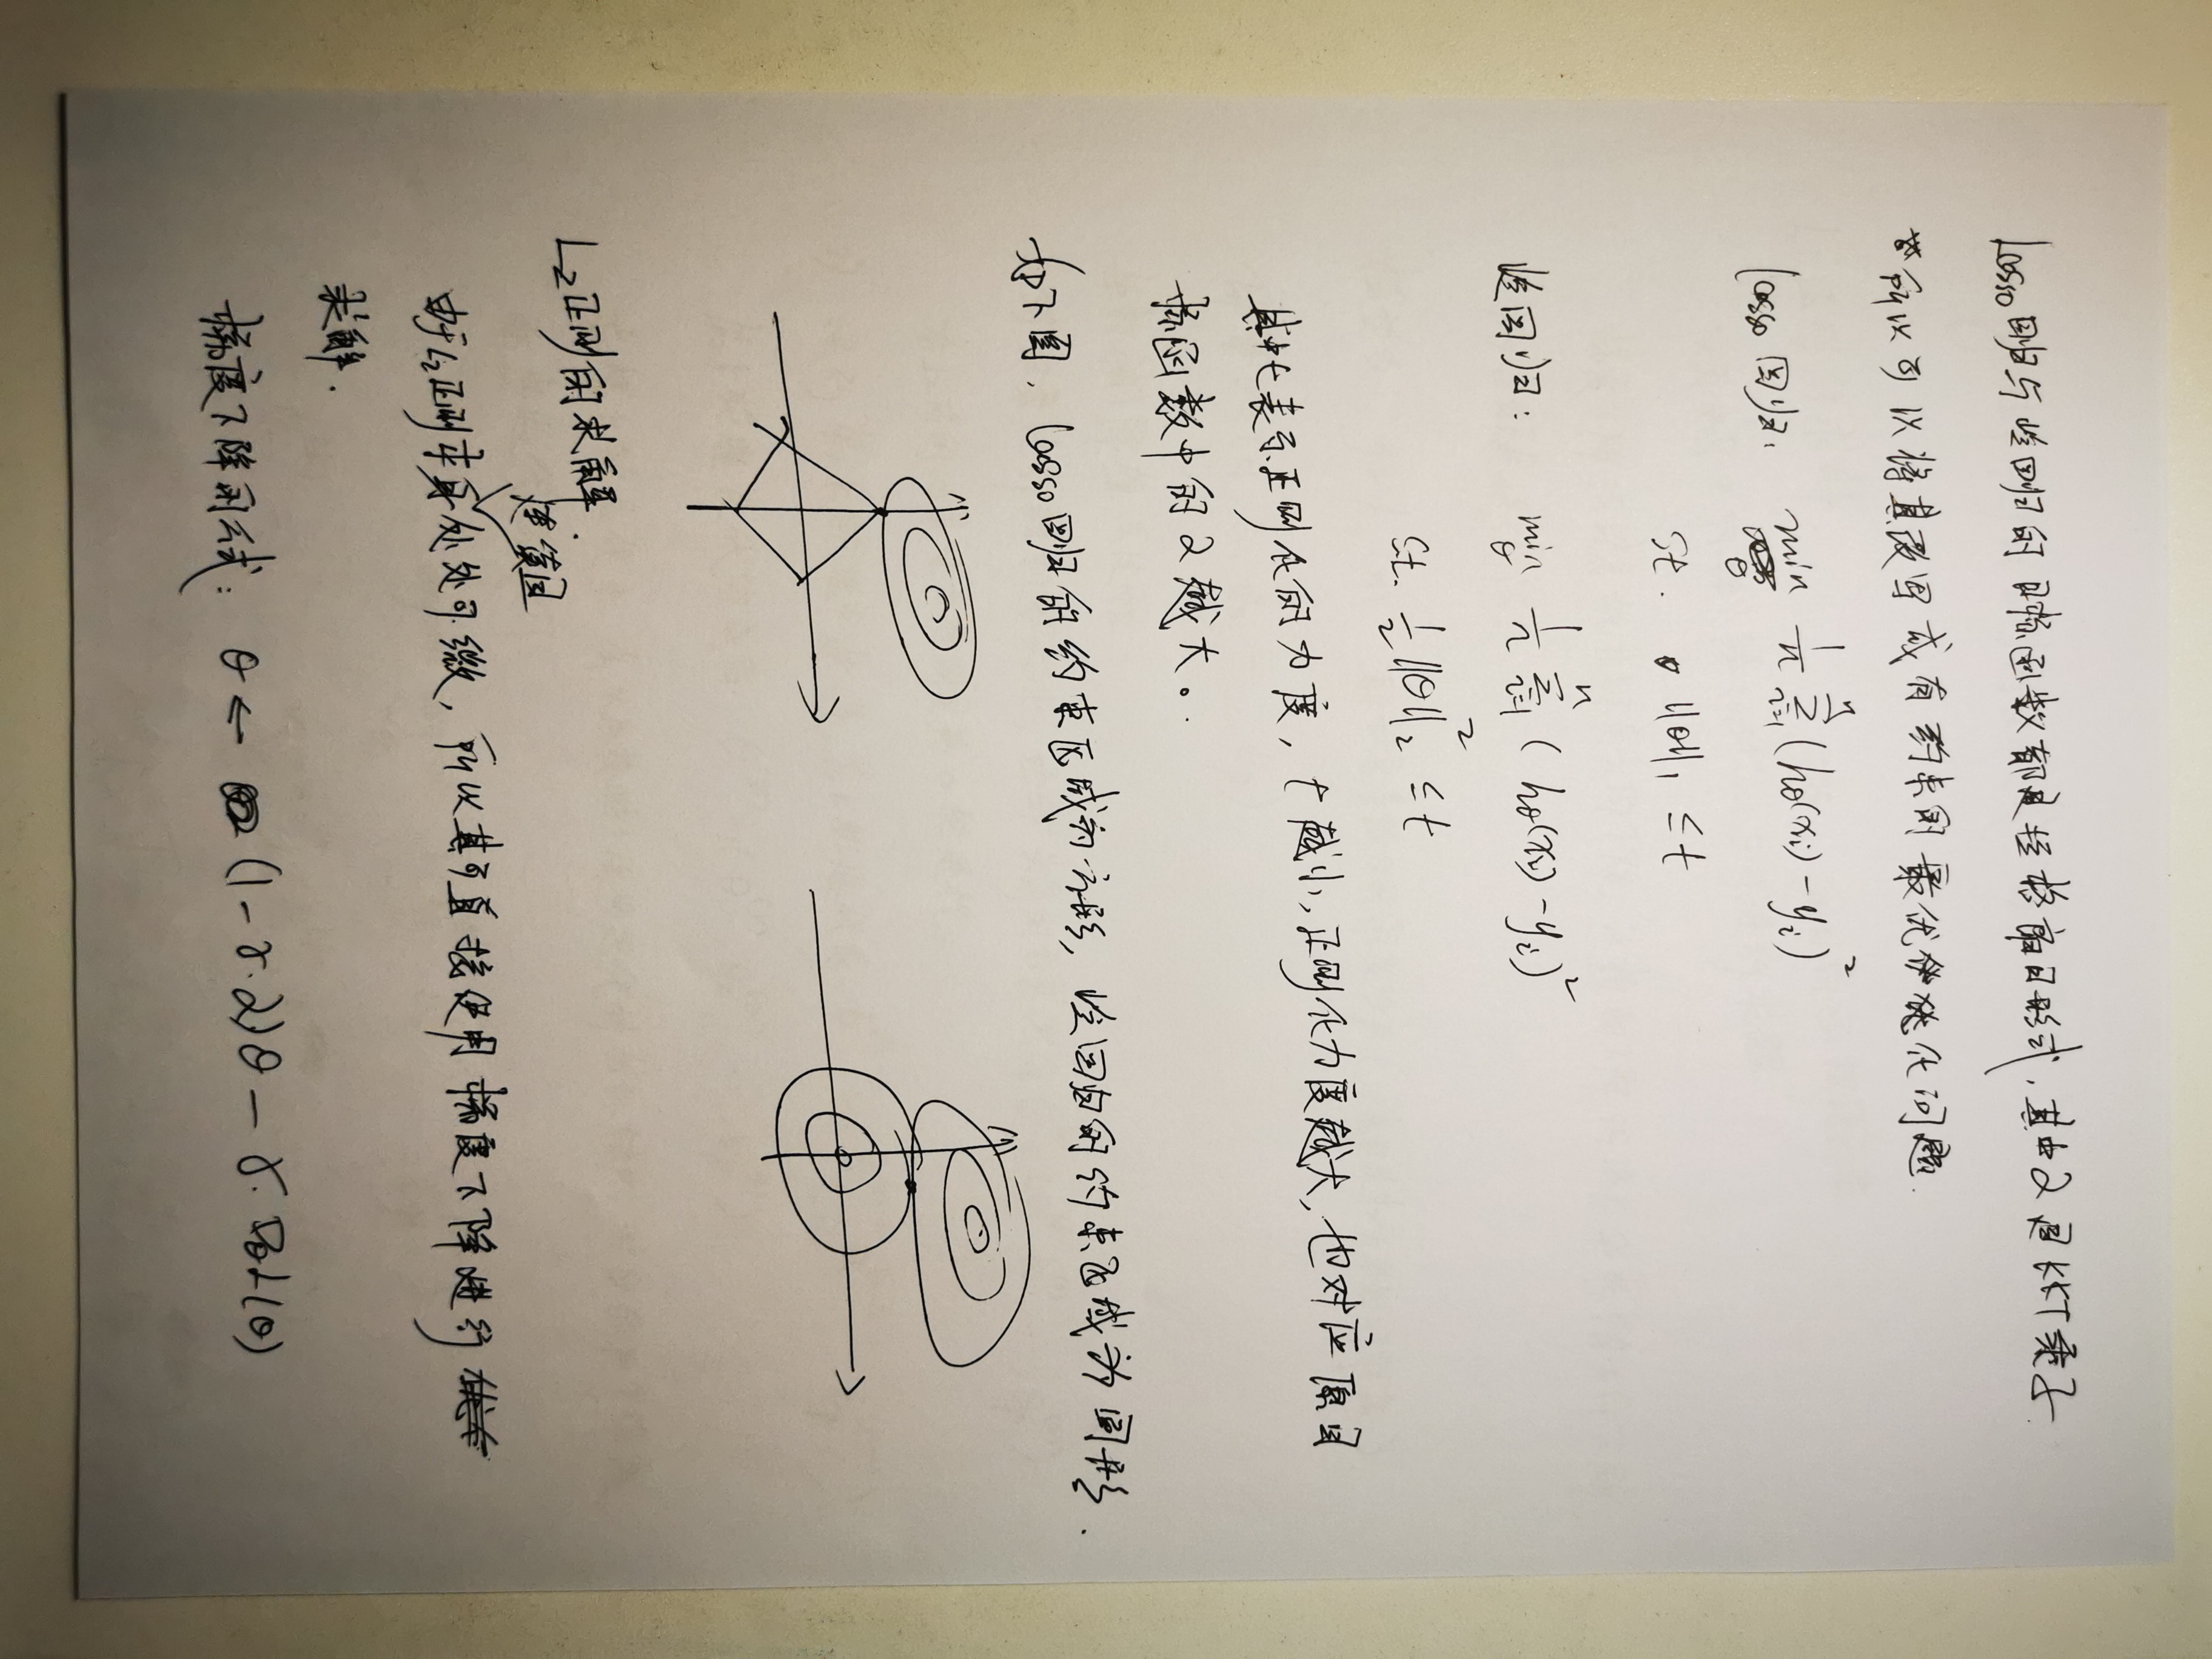 Lasso回归与岭回归的目标函数都是拉格朗日形式,其中λ是KKT乘子.
所以可以将其改写成有约束的最优化问题.
Lasso回归: min_θ 1/n Σ_{i=1}^{n} (h_θ(x_i) - y_i)^2
st. ||θ||_1 ≤ t
岭回归: min_θ 1/n Σ_{i=1}^{n} (h_θ(x_i) - y_i)^2
st. 1/2 ||θ||_2^2 ≤ t
其中t表示正则化的力度, t越小,正则化力度越大,也对应原目
标函数中的λ越大。
如下图, Lasso回归的约束区域为方形, 岭回归的约束区域为圆形.
L2正则的求解.
连续且
由于L2正则本身处处可微, 所以其可直接使用梯度下降进行
求解.
梯度下降公式: θ ← (1-γ·λ)θ - γ·∇_θL(θ)